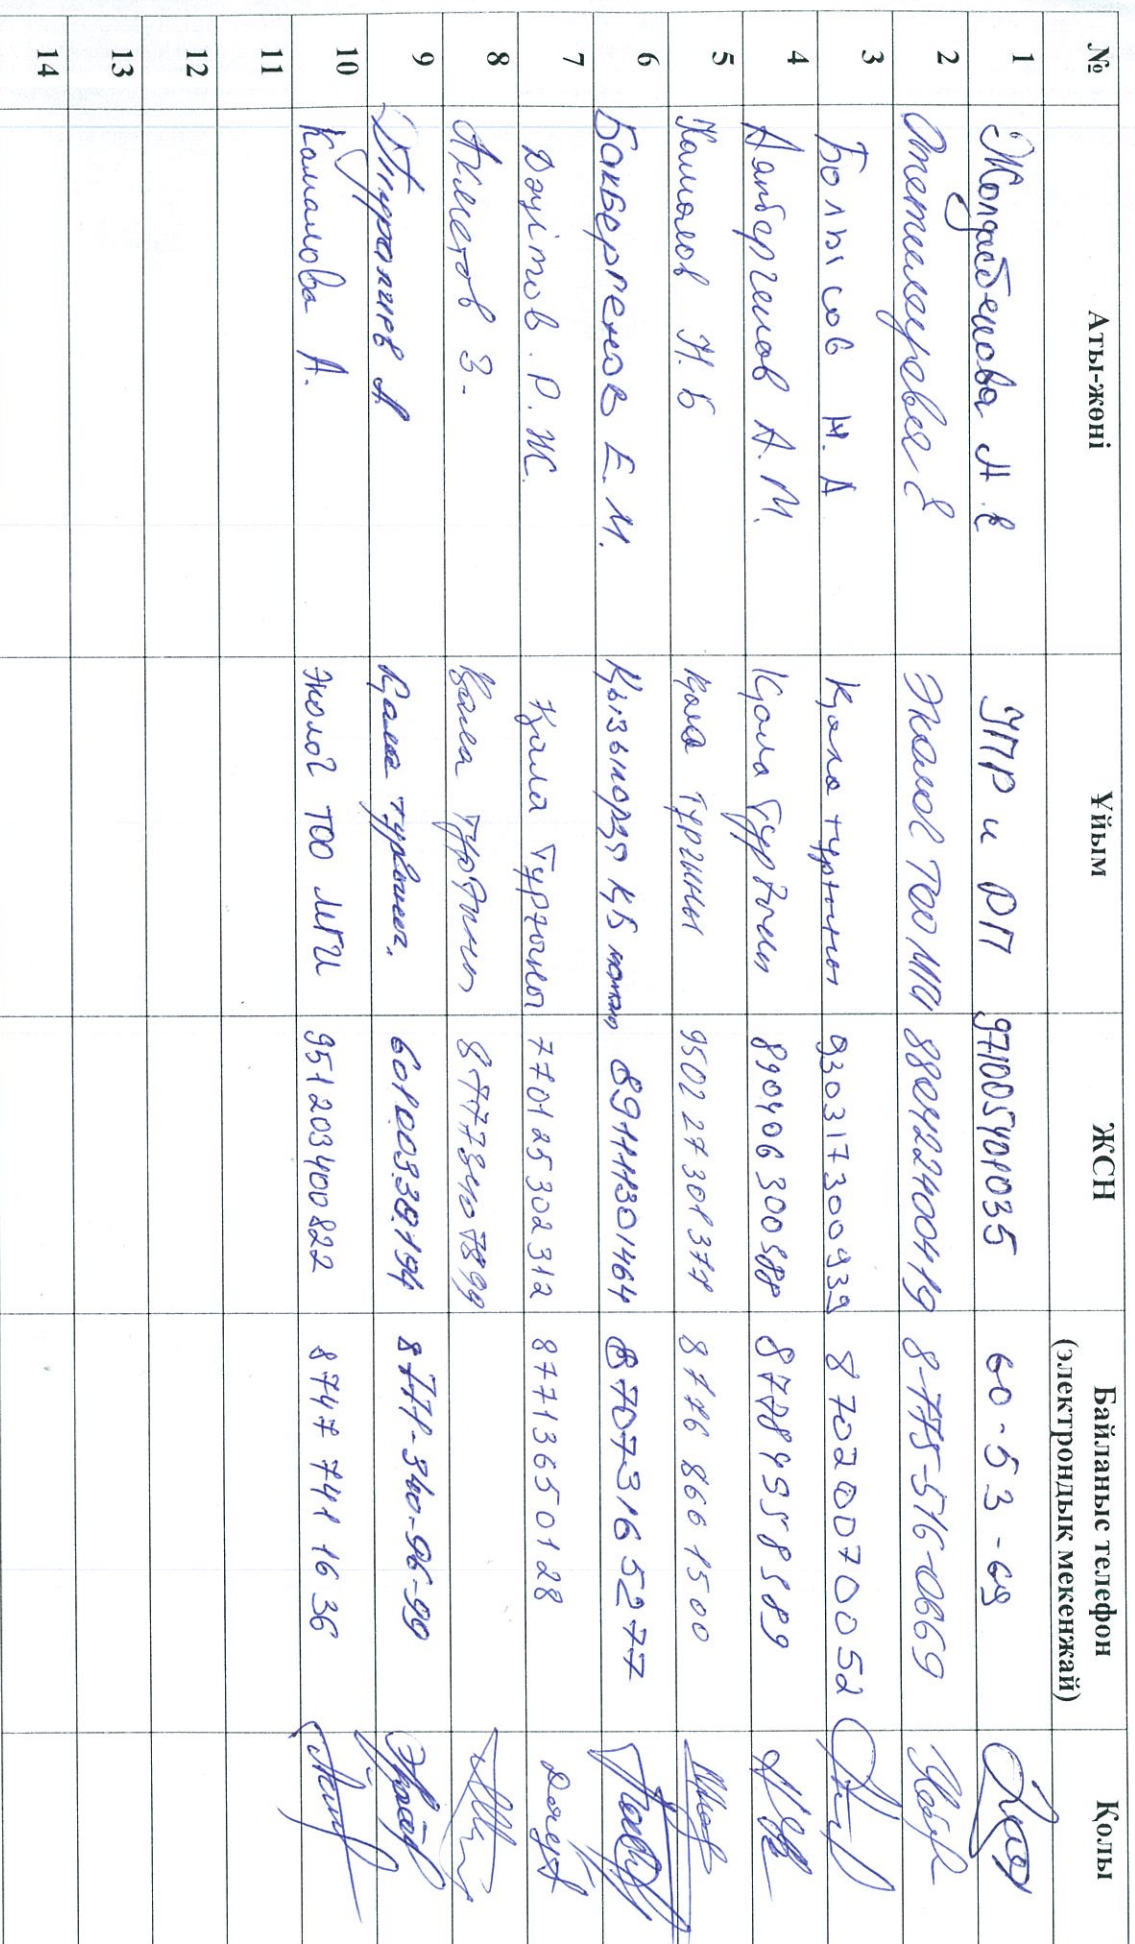 № Аты-жөні Ұйым ЖСН Байланыс телефон (электрондық мекенжай) Қолы
1 Жолдасбекова А.Е УПР и РП 971005401035 60-53-69
2 Өтетілеуова Э Эколог ТОО МГИ 880422400419 8-775-516-0669
3 Болысов Н.А Қала тұрғыны 930317300939 87020070052
4 Алпбергенов А.М. Қала тұрғыны 8778
5 Камалов Н.Б Қала тұрғыны 950227301371 8776 866 1500
6 Бакбергенов Е.М. Қызылорда ҚБ 891111301464 87073165277
7 Дәуітов Р.Ж. Қала тұрғыны 770125302312 87713650128
8 Ахметов З. Қала тұрғыны
9 А Қала тұрғыны. 8771-340-96-99
10 Камалова А. Эколог ТОО МГИ 951203400822 8747 741 16 36
11
12
13
14